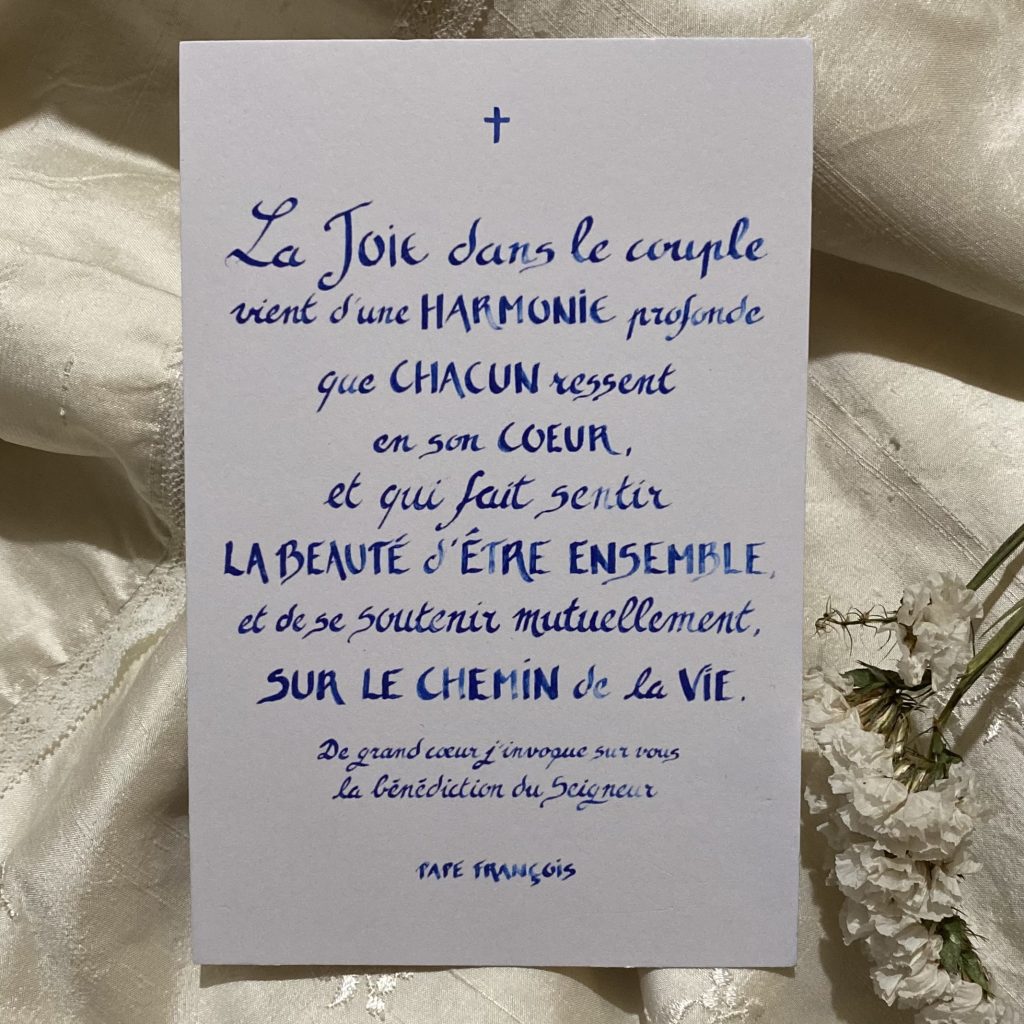 La Joie dans le couple
vient d'une HARMONIE profonde
que CHACUN ressent
en son COEUR,
et qui fait sentir
LA BEAUTÉ d'ÊTRE ENSEMBLE,
et de se soutenir mutuellement,
SUR LE CHEMIN de la VIE.
De grand cœur j'invoque sur vous
la bénédiction du Seigneur
PAPE FRANÇOIS